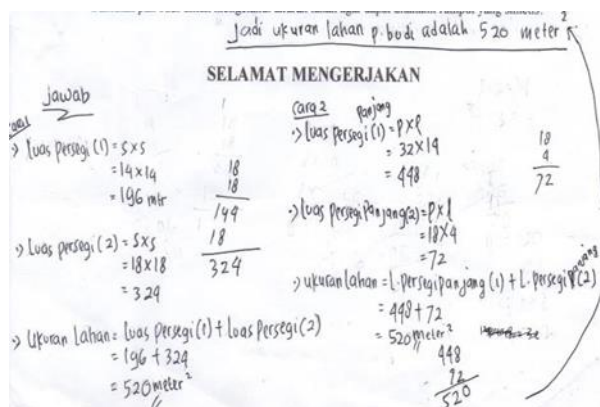 Jadi ukuran lahan p. bodi adalah 520 meter²
SELAMAT MENGERJAKAN
Jawab
:> luas persegi (1) = s×s
= 14×14
= 196 mtr
18
18
144
18
324
:> Luas persegi (2) = s×s
= 18×18
= 324
:> Ukuran Lahan = luas Persegi (1) + luas Persegi (2)
= 196 + 324
= 520 meter²
Cara 2
:> luas persegi panjang (1) = p×l
= 32×14
= 448
18
4
72
:> luas persegi panjang (2) = p×l
= 18×4
= 72
:> ukuran lahan = L. persegi panjang (1) + L. persegi panjang (2)
= 448 + 72
= 520 meter²
448
72
520